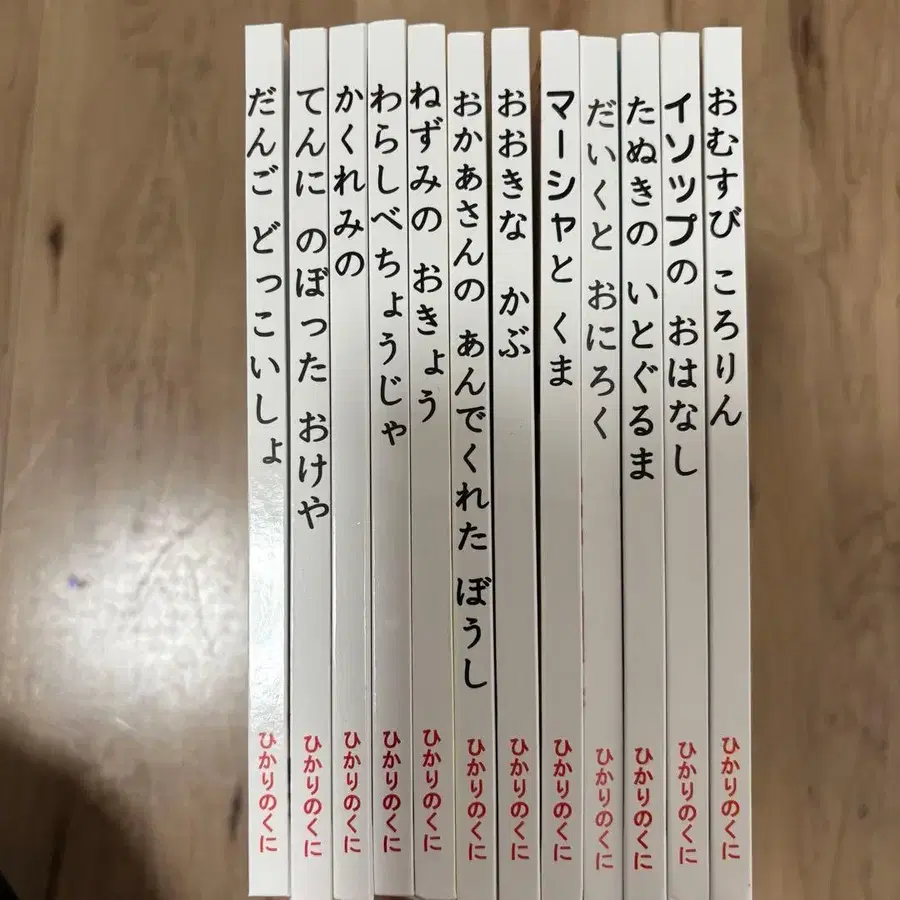 だんご どっこいしょ
ひかりのくに
てんに のぼった おけや
ひかりのくに
かくれみの
ひかりのくに
わらしべちょうじゃ
ひかりのくに
ねずみの おきょう
ひかりのくに
おかあさんの あんでくれた ぼうし
ひかりのくに
おおきな かぶ
ひかりのくに
マーシャと くま
ひかりのくに
だいくと おにろく
ひかりのくに
たぬきの いとぐるま
ひかりのくに
イソップの おはなし
ひかりのくに
おむすび ころりん
ひかりのくに